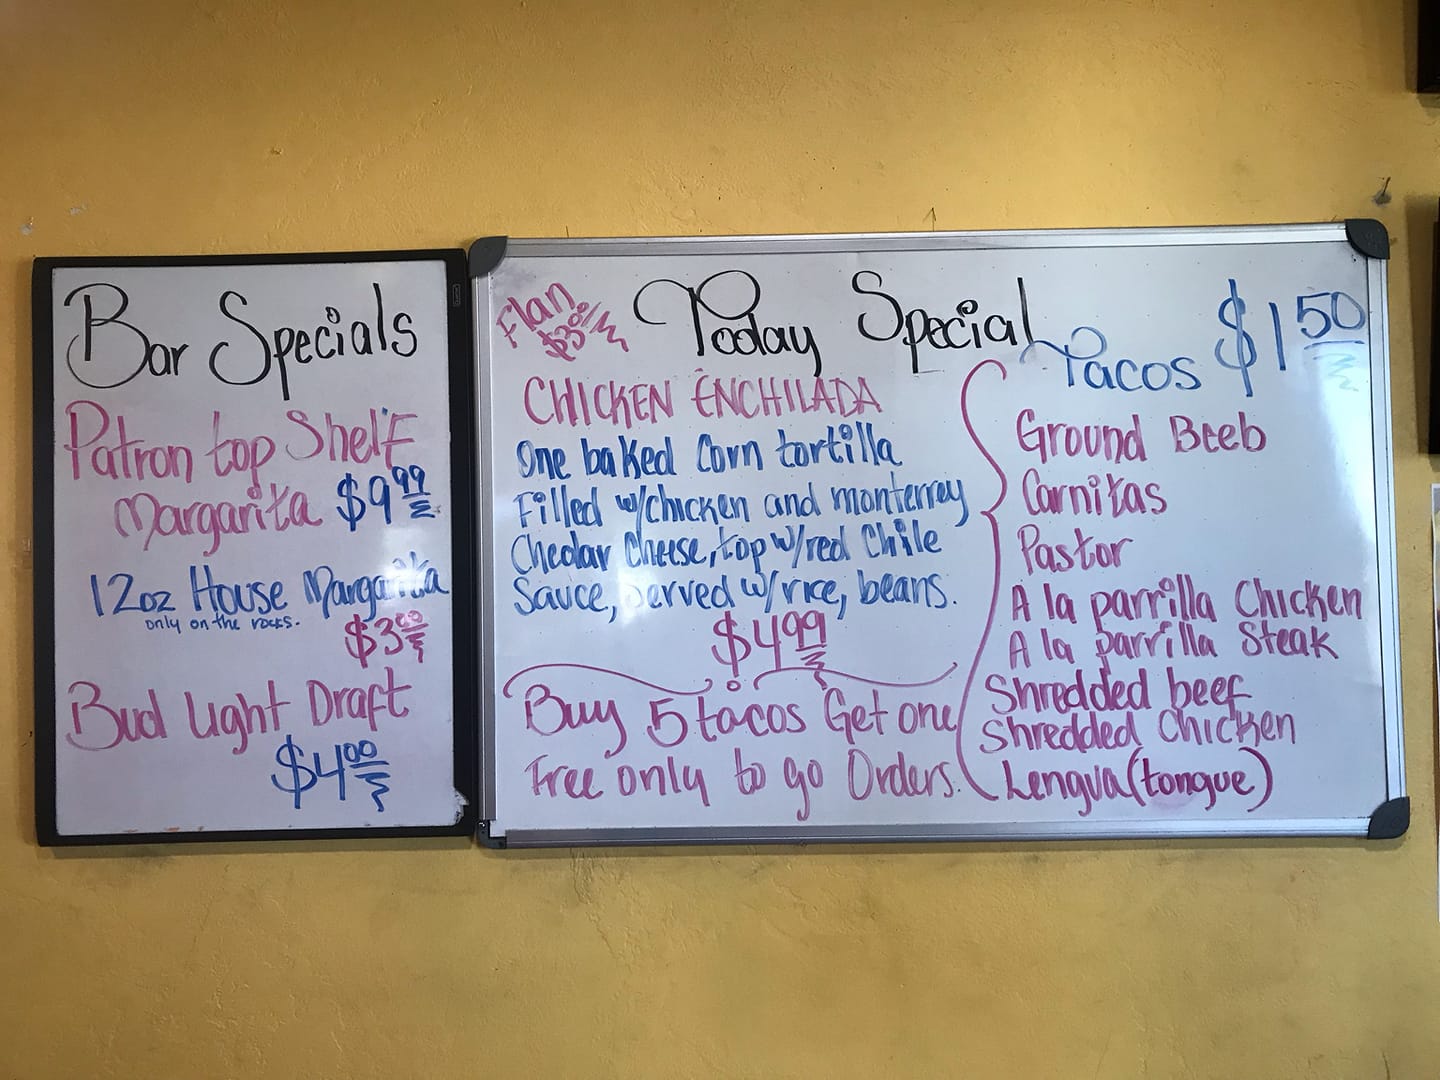 Bar Specials
Patron top Shelf
Margarita $9.99
12oz House Margarita
only on the rocks.
$3.00
Bud Light Draft
$4.00
Flan
Today Special
CHICKEN ENCHILADA
One baked Corn tortilla
Filled w/chicken and monterrey
Chedar Cheese, top w/red Chile
Sauce, Served w/rice, beans.
$4.99
Buy 5 tacos Get one
Free only to go Orders.
Tacos $1.50
Ground Beeb
Carnitas
Pastor
A la parrilla Chicken
A la parrilla Steak
Shredded beef
Shredded Chicken
Lengua (tongue)